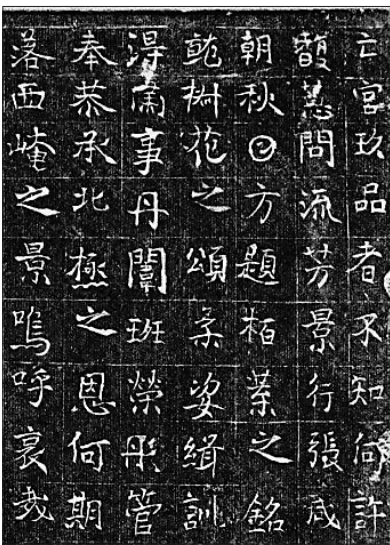 亡宮玖品者不知何許
馥蕙問流芳景行張咸
朝秋𡆠方題栢葉之銘
花之頌柔姿緝訓
淂肅事丹闈班榮彤管
奉恭承北極之恩何期
落西崦之景嗚呼哀哉